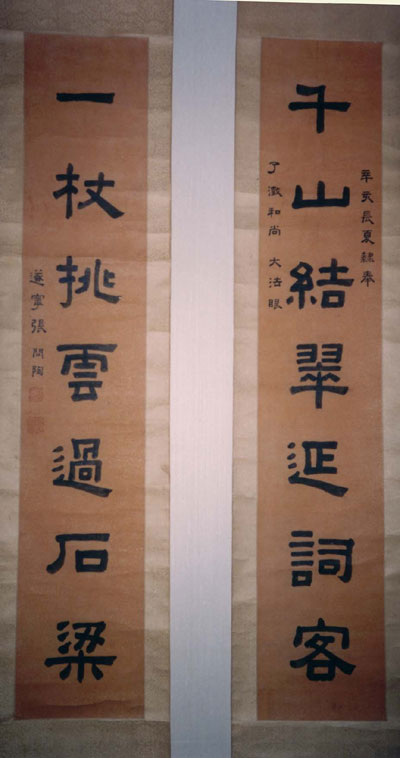 辛亥長夏隸奉
千山結翠延詞客
了澂和尚 大法眼
一杖挑雲過石梁
遂寧張問陶